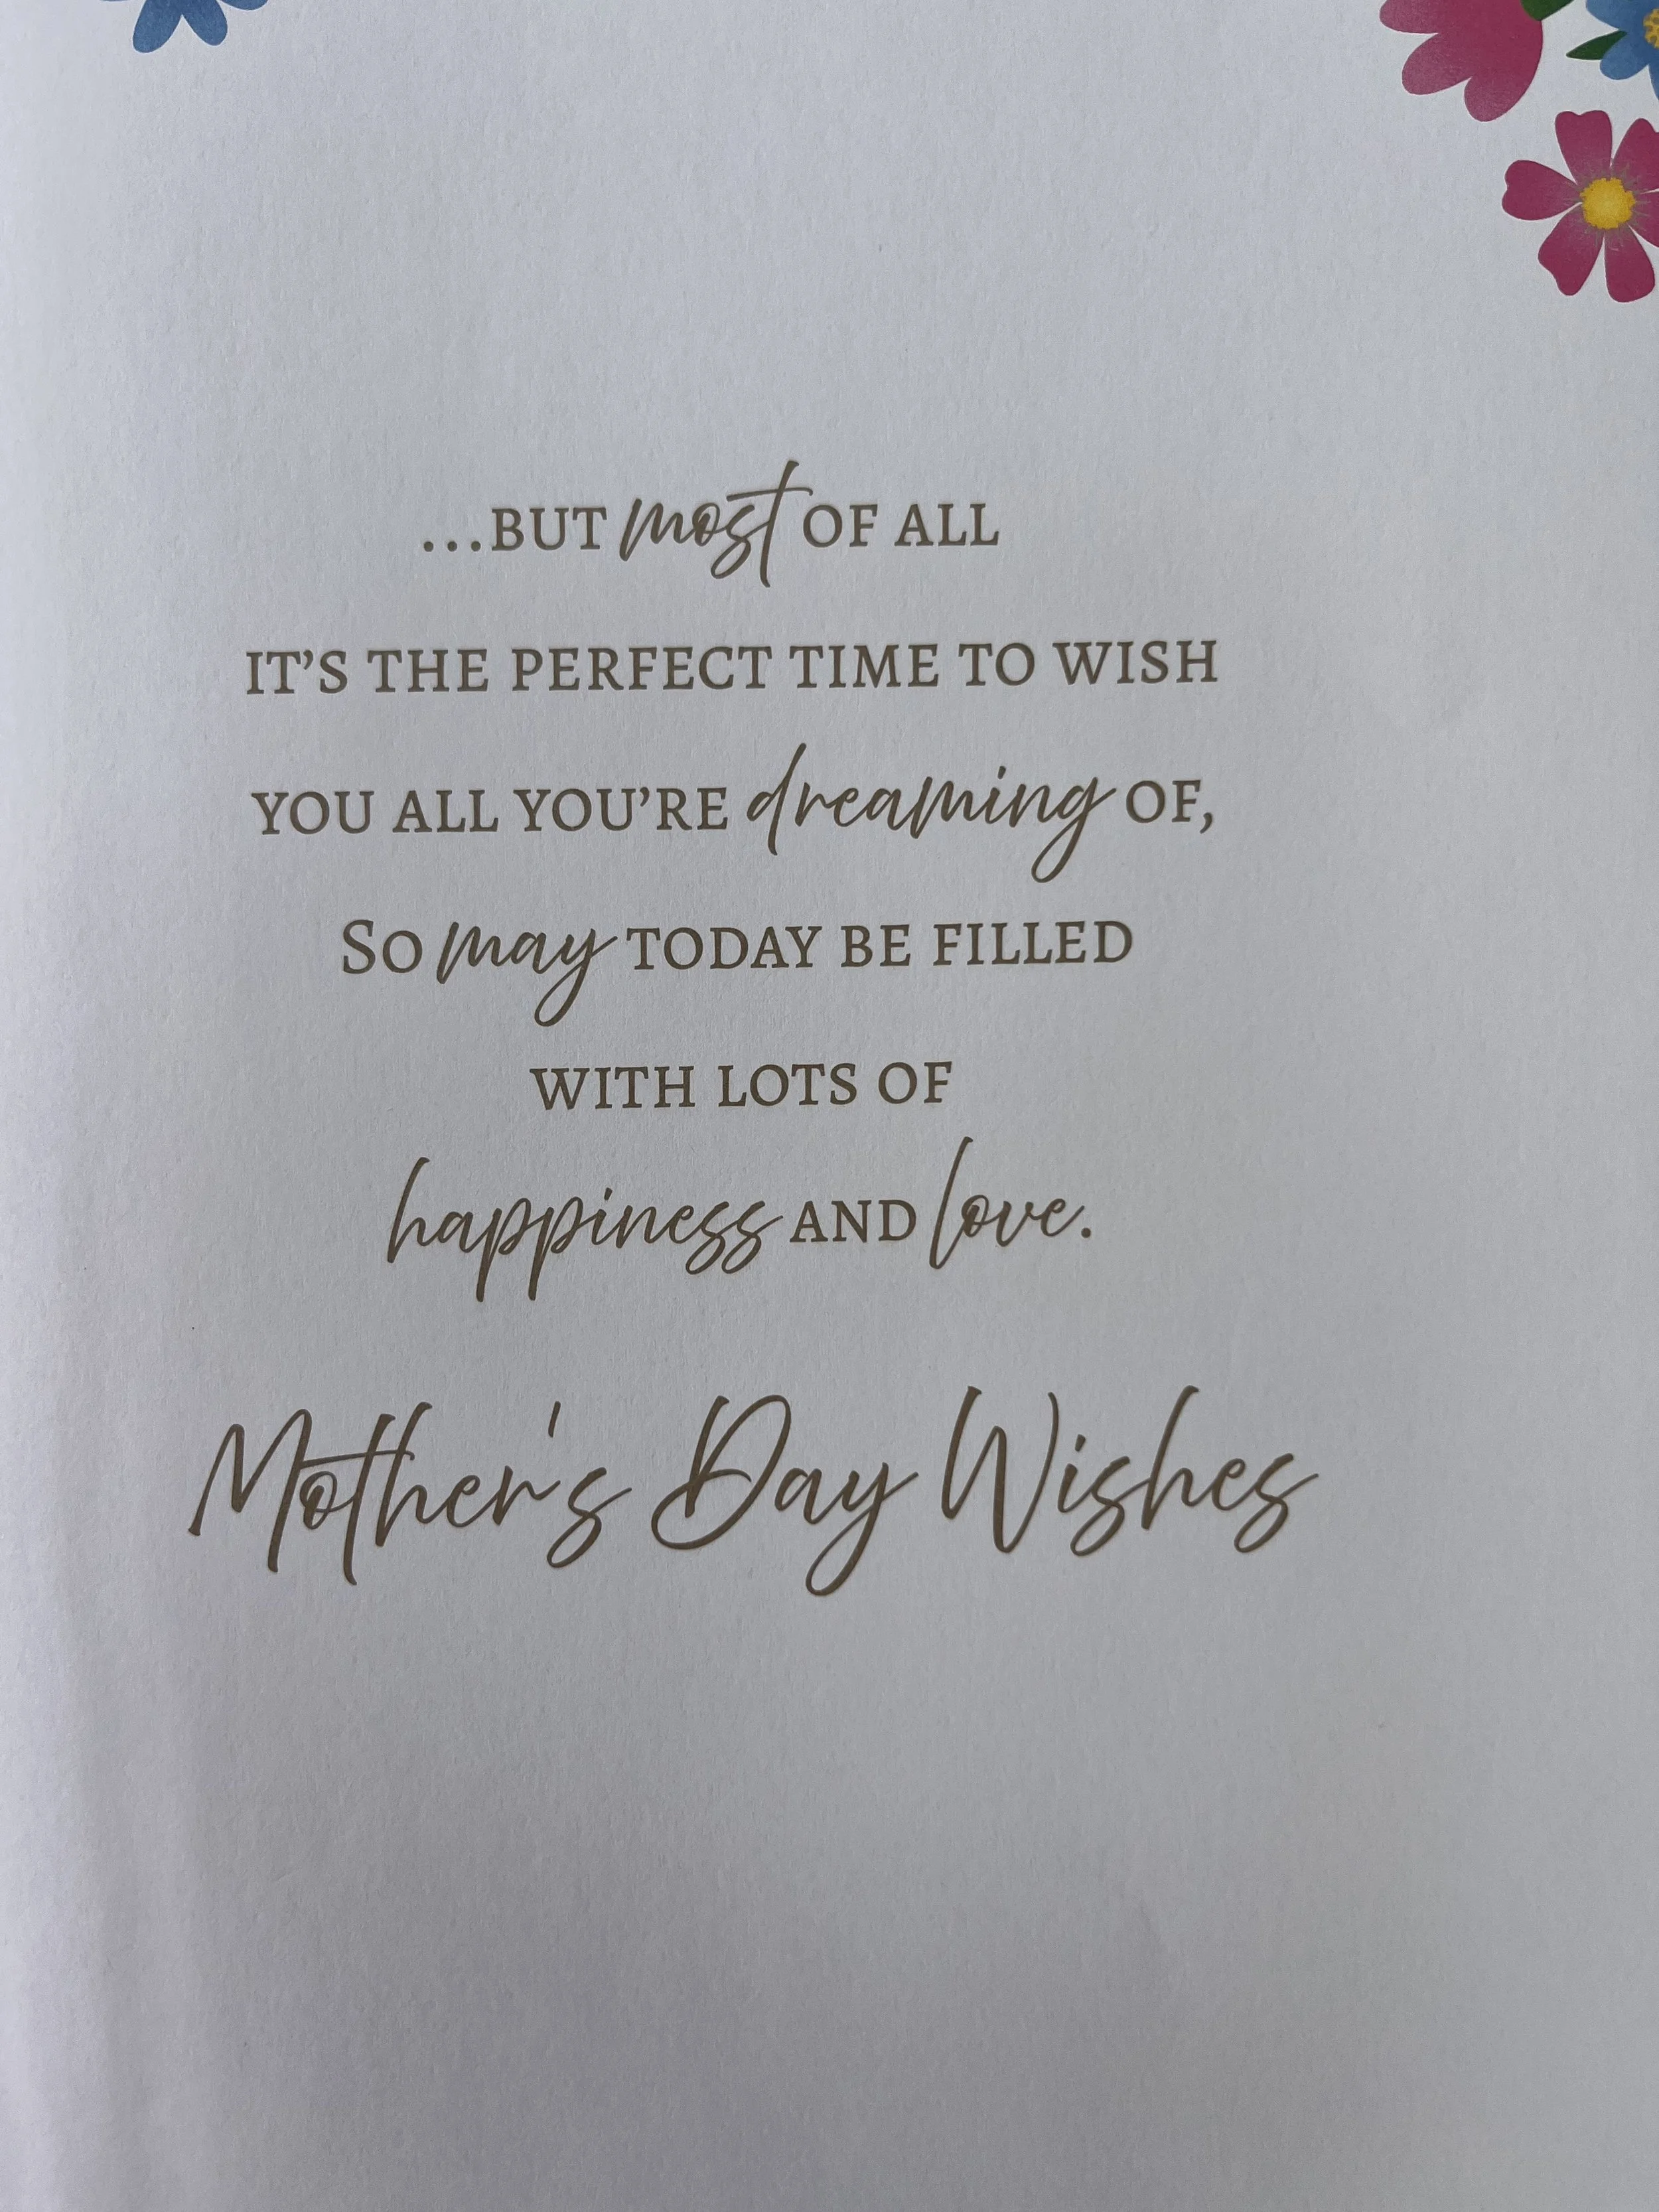 ...BUT most OF ALL
IT'S THE PERFECT TIME TO WISH
YOU ALL YOU'RE dreaming OF,
SO may TODAY BE FILLED
WITH LOTS OF
happiness AND love.
Mother's Day Wishes